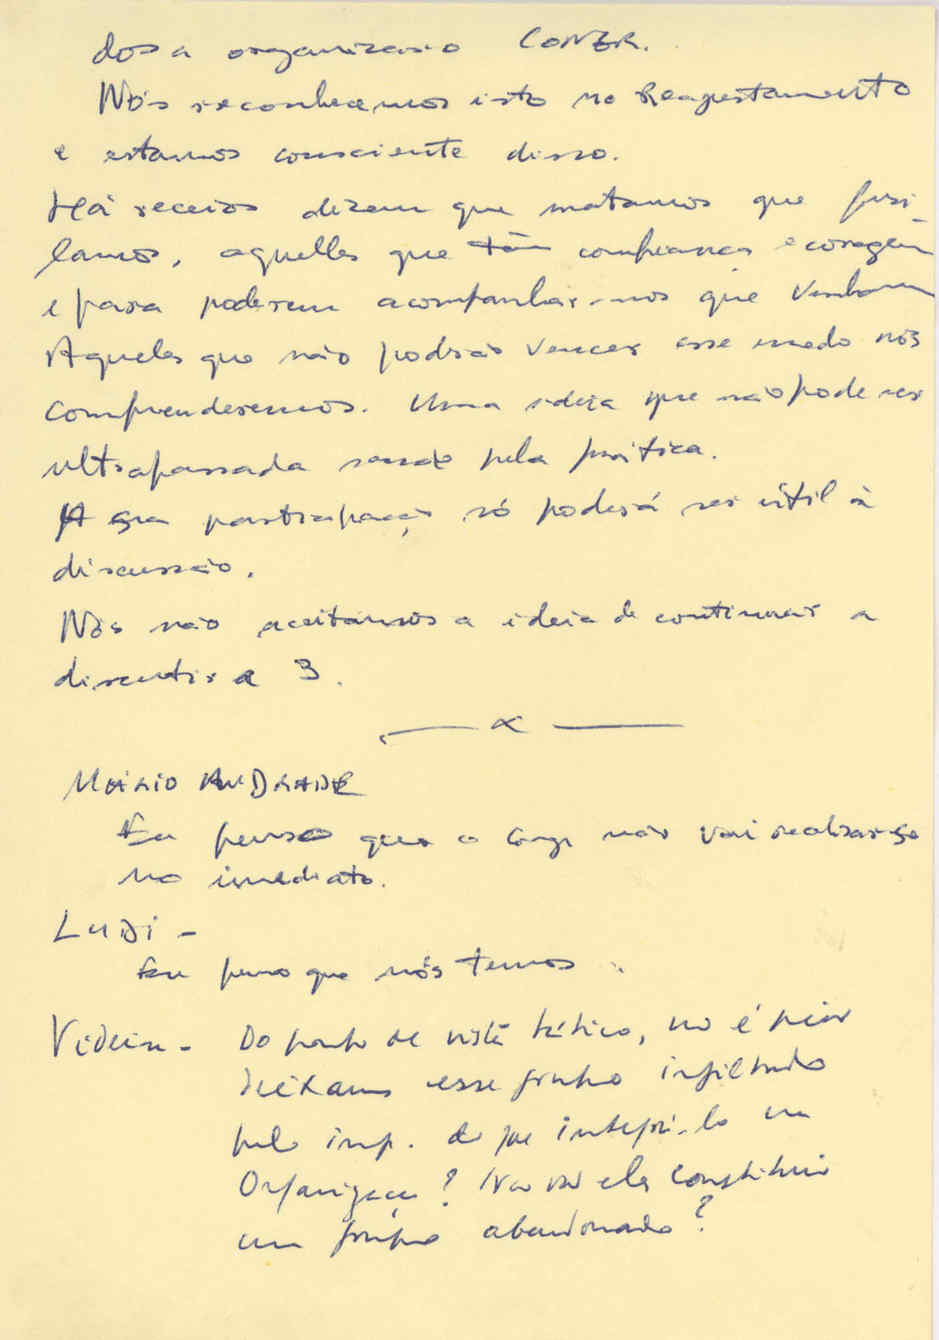 dos a organizacio CONFR.
Nós reconhecemos isto no Reajustamento
e estamos consciente disso.
Há receios dizem que matamos que fusi_
lamos, aquelles que têm confiança e coragem
e para poderem acompanhar-nos que venham
Aqueles que não podrão vencer esse medo nós
comprenderemos. Uma ideia que não pode ser
ultrapassada senão pela prática.
A sua participação só poderá ser útil à
discussão.
Nós não aceitamos a ideia de continuar a
discutir a 3.
MÁRIO ANDRADE
Eu penso que o Congr não vai realizar-se
no imediato.
LUDI -
Eu penso que nós temos ..
Videira - Do ponto de vista tático, não é pior
deixarmos esse grupo infiltrado
pelo imp. do que integrá-lo na
Organização? Não vai ele constituir
um grupo abandonado?